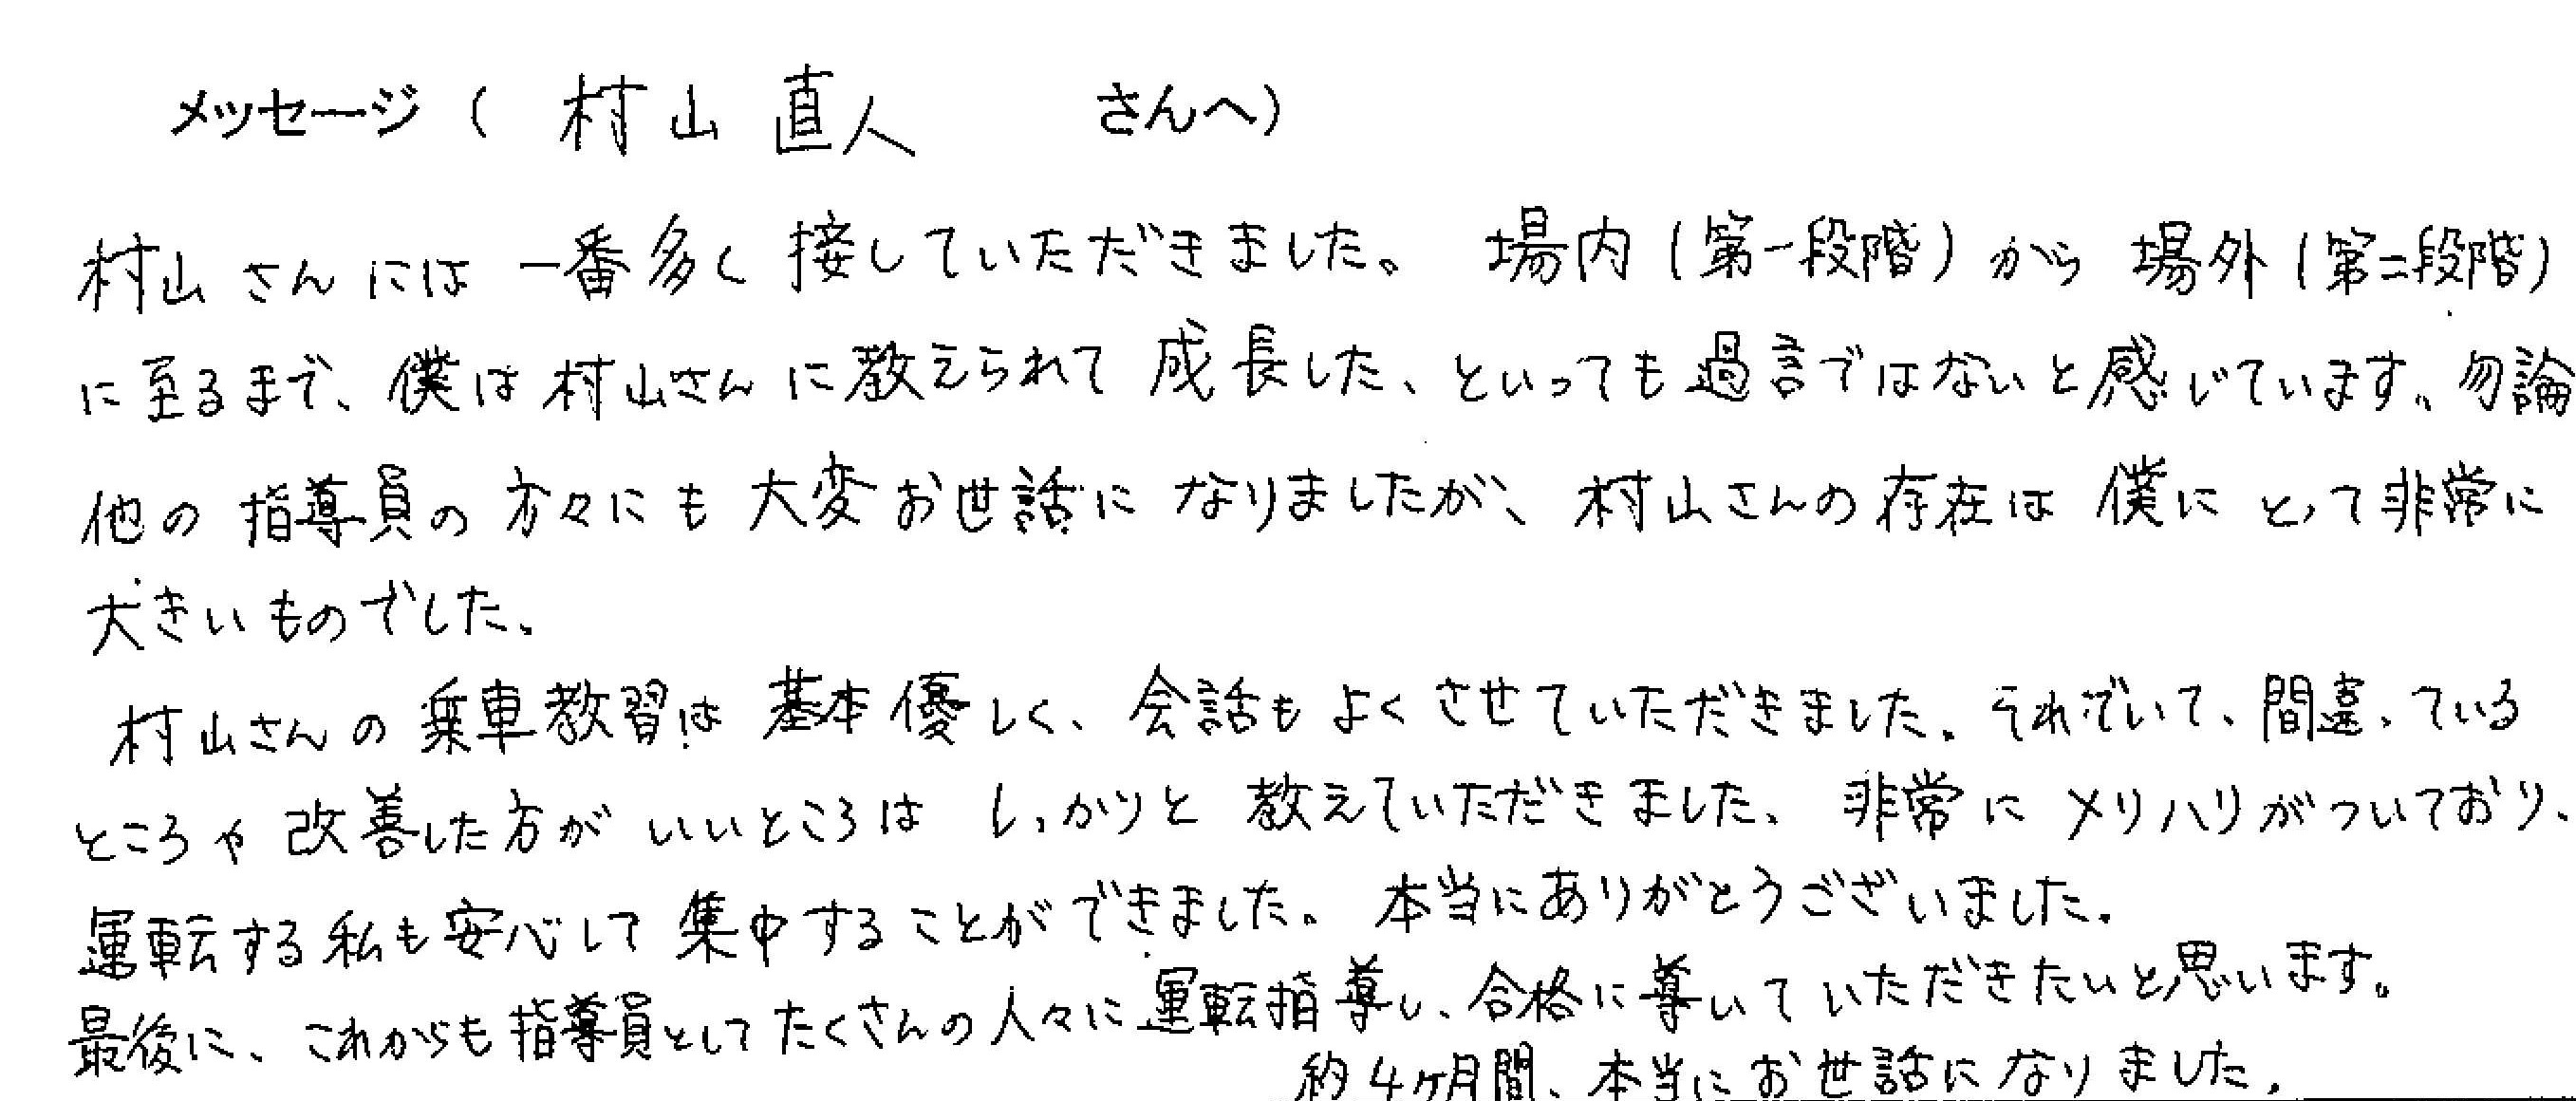 メッセージ（ 村山 直人 さんへ）
村山さんには一番多く接していただきました。場内（第一段階）から場外（第二段階）
に至るまで、僕は村山さんに教えられて成長した、といっても過言ではないと感じています。勿論
他の指導員の方々にも大変お世話になりましたが、村山さんの存在は僕にとって非常に
大きいものでした。
村山さんの乗車教習は基本優しく、会話もよくさせていただきました。それでいて、間違っている
ところや改善した方がいいところはしっかりと教えていただきました、非常にメリハリがついており、
運転する私も安心して集中することができました。本当にありがとうございました。
最後に、これからも指導員としてたくさんの人々に運転指導し、合格に導いていただきたいと思います。
約4ヶ月間、本当にお世話になりました。